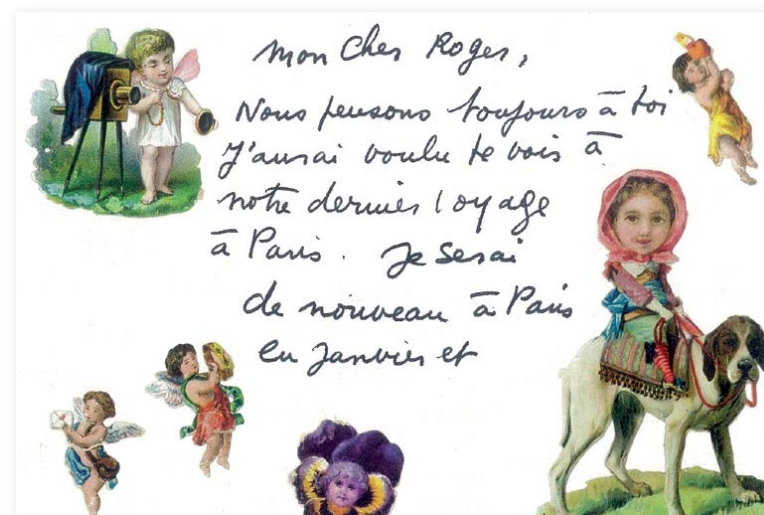 Mon Cher Roger,
Nous pensons toujours à toi
J'aurai voulu te voir à
notre dernier voyage
à Paris. Je serai
de nouveau à Paris
en Janvier et